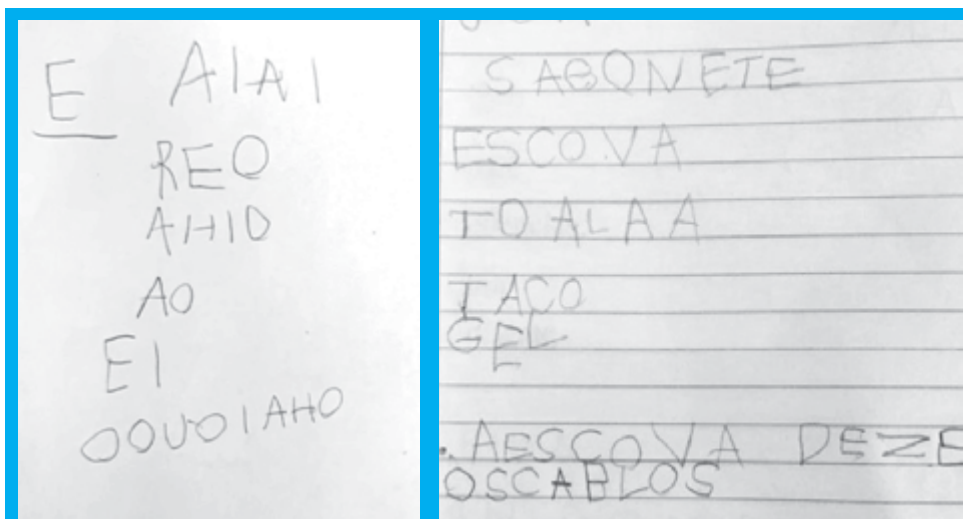 E AIAI
REO
AHIO
AO
EI
OOUOIAHO
SABONETE
ESCOVA
TOALAA
TACO
GEL
. AESCOVA DEZE
OSCABLOS